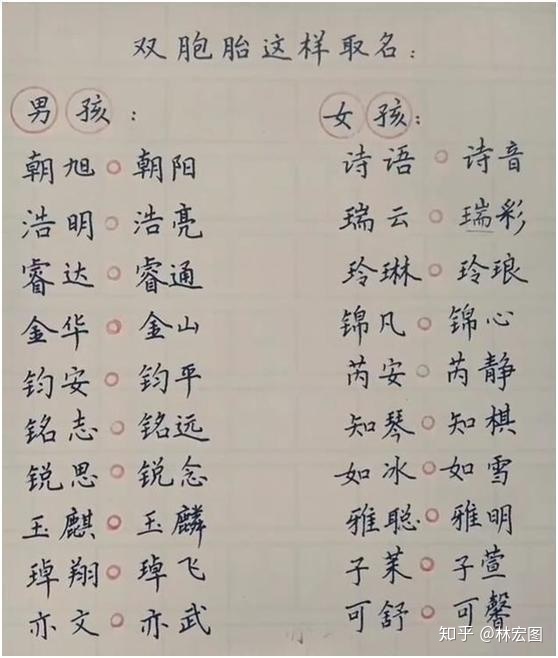 双胞胎这样取名：
男孩：
朝旭。朝阳
浩明。浩亮
睿达。睿通
金华。金山
钧安。钧平
铭志。铭远
锐思。锐念
玉麒。玉麟
琸翔。琸飞
亦文。亦武
女孩：
诗语。诗音
瑞云。瑞彩
玲琳。玲琅
锦凡。锦心
芮安。芮静
知琴。知棋
如冰。如雪
雅聪。雅明
子茉。子萱
可舒。可馨
知乎 @林宏图